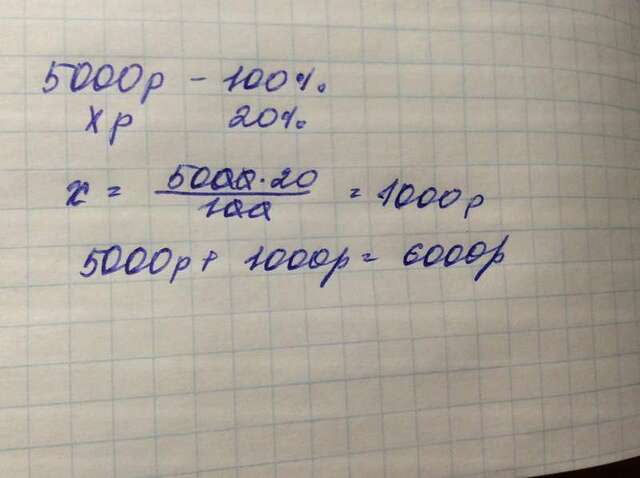 5000р - 100%
Хр 20%
x = 5000·20/100 = 1000р
5000р + 1000р = 6000р